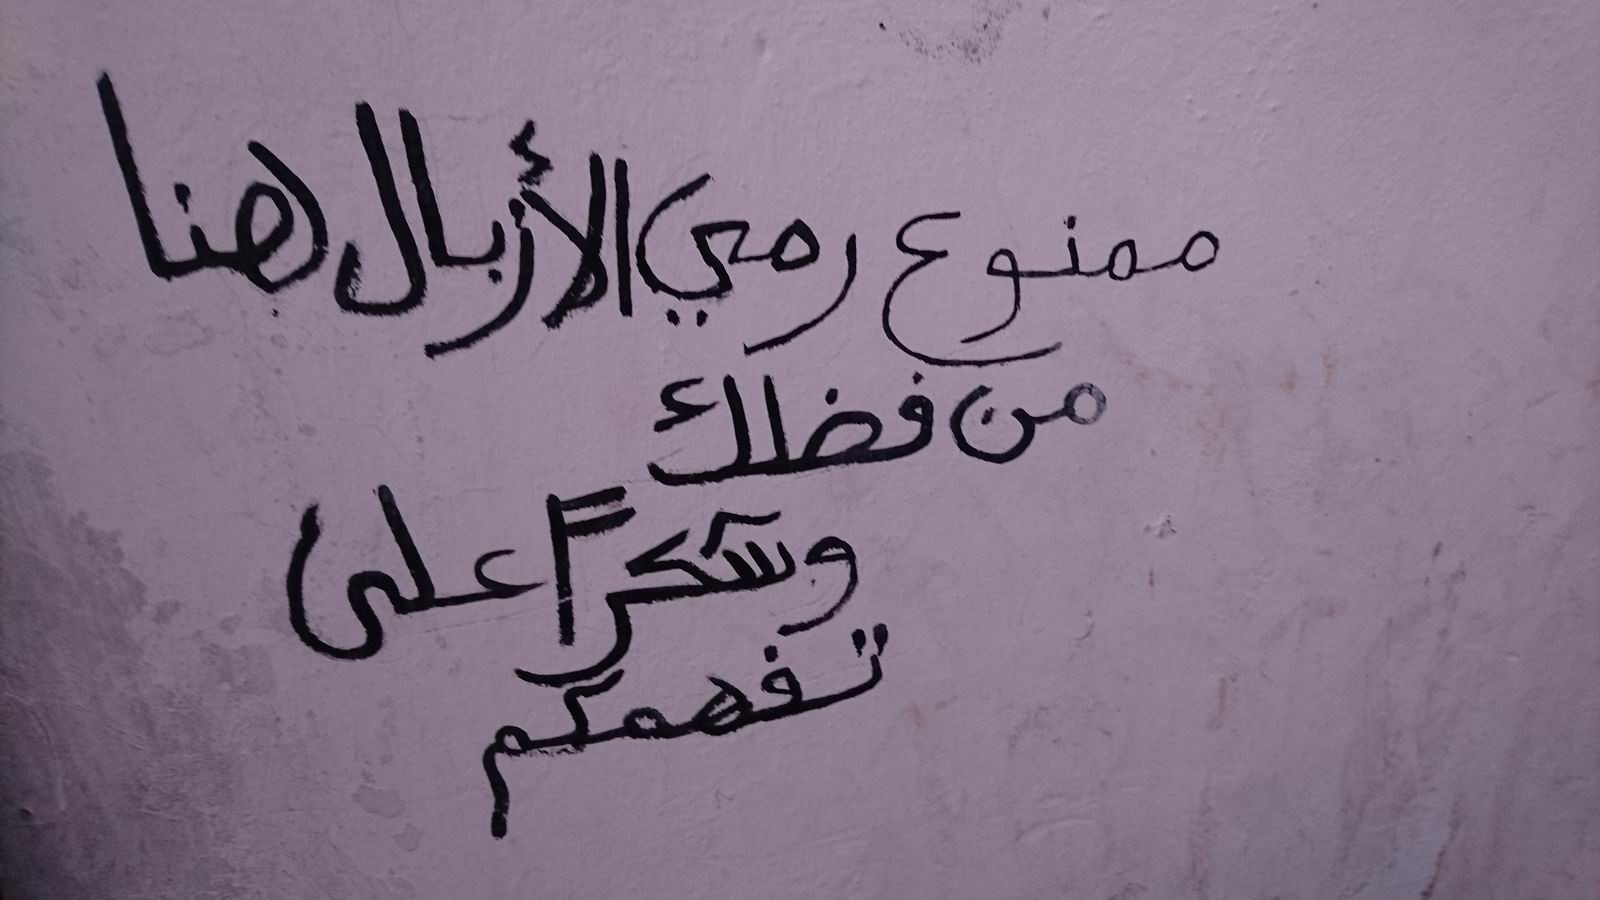 ممنوع رمي الأزبال هنا
من فضلك
وشكراً على
تفهمكم